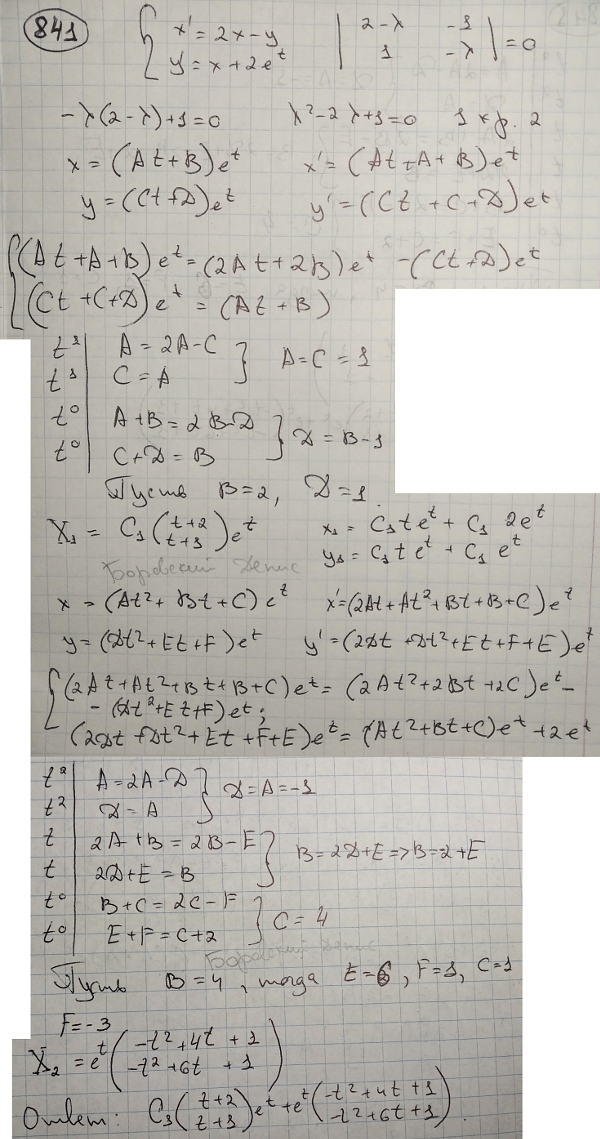 841
{ x' = 2x - y
y' = x + 2e^t
| 2-λ -1
1 -λ | = 0
-λ(2-λ)+1=0 λ²-2λ+1=0 1 кр. 2
x = (At+B)e^t x' = (At+A+B)e^t
y = (Ct+D)e^t y' = (Ct+C+D)e^t
{ (At+A+B)e^t = (2At+2B)e^t - (Ct+D)e^t
(Ct+C+D)e^t = (At+B)
t¹ | A = 2A-C } A=C=1
t¹ | C = A
t⁰ | A+B = 2B-D } D = B-1
t⁰ | C+D = B
Пусть B=2, D=1
X₁ = C₁(t+2 t+1)e^t x₁ = C₁te^t + C₁ 2e^t
y₁ = C₁te^t + C₁ e^t
Боровский Денис
x = (At²+Bt+C)e^t x' = (2At+At²+Bt+B+C)e^t
y = (Dt²+Et+F)e^t y' = (2Dt+Dt²+Et+F+E)e^t
{ (2At+At²+Bt+B+C)e^t = (2At²+2Bt+2C)e^t -
- (Dt²+Et+F)e^t;
(2Dt+Dt²+Et+F+E)e^t = (At²+Bt+C)e^t + 2e^t
t² | A = 2A-D } D=A=-1
t² | D = A
t | 2A+B = 2B-E } B=2D+E => B=-2+E
t | 2D+E = B
t⁰ | B+C = 2C-F } C=4
t⁰ | E+F = C+2
Боровский Денис
Пусть B=4, тогда E=6, F=1, C=1
F=-3
X₂ = e^t(-t²+4t+1 -t²+6t+1)
Ответ: C₁(t+2 t+1)e^t + e^t(-t²+4t+1 -t²+6t+1).